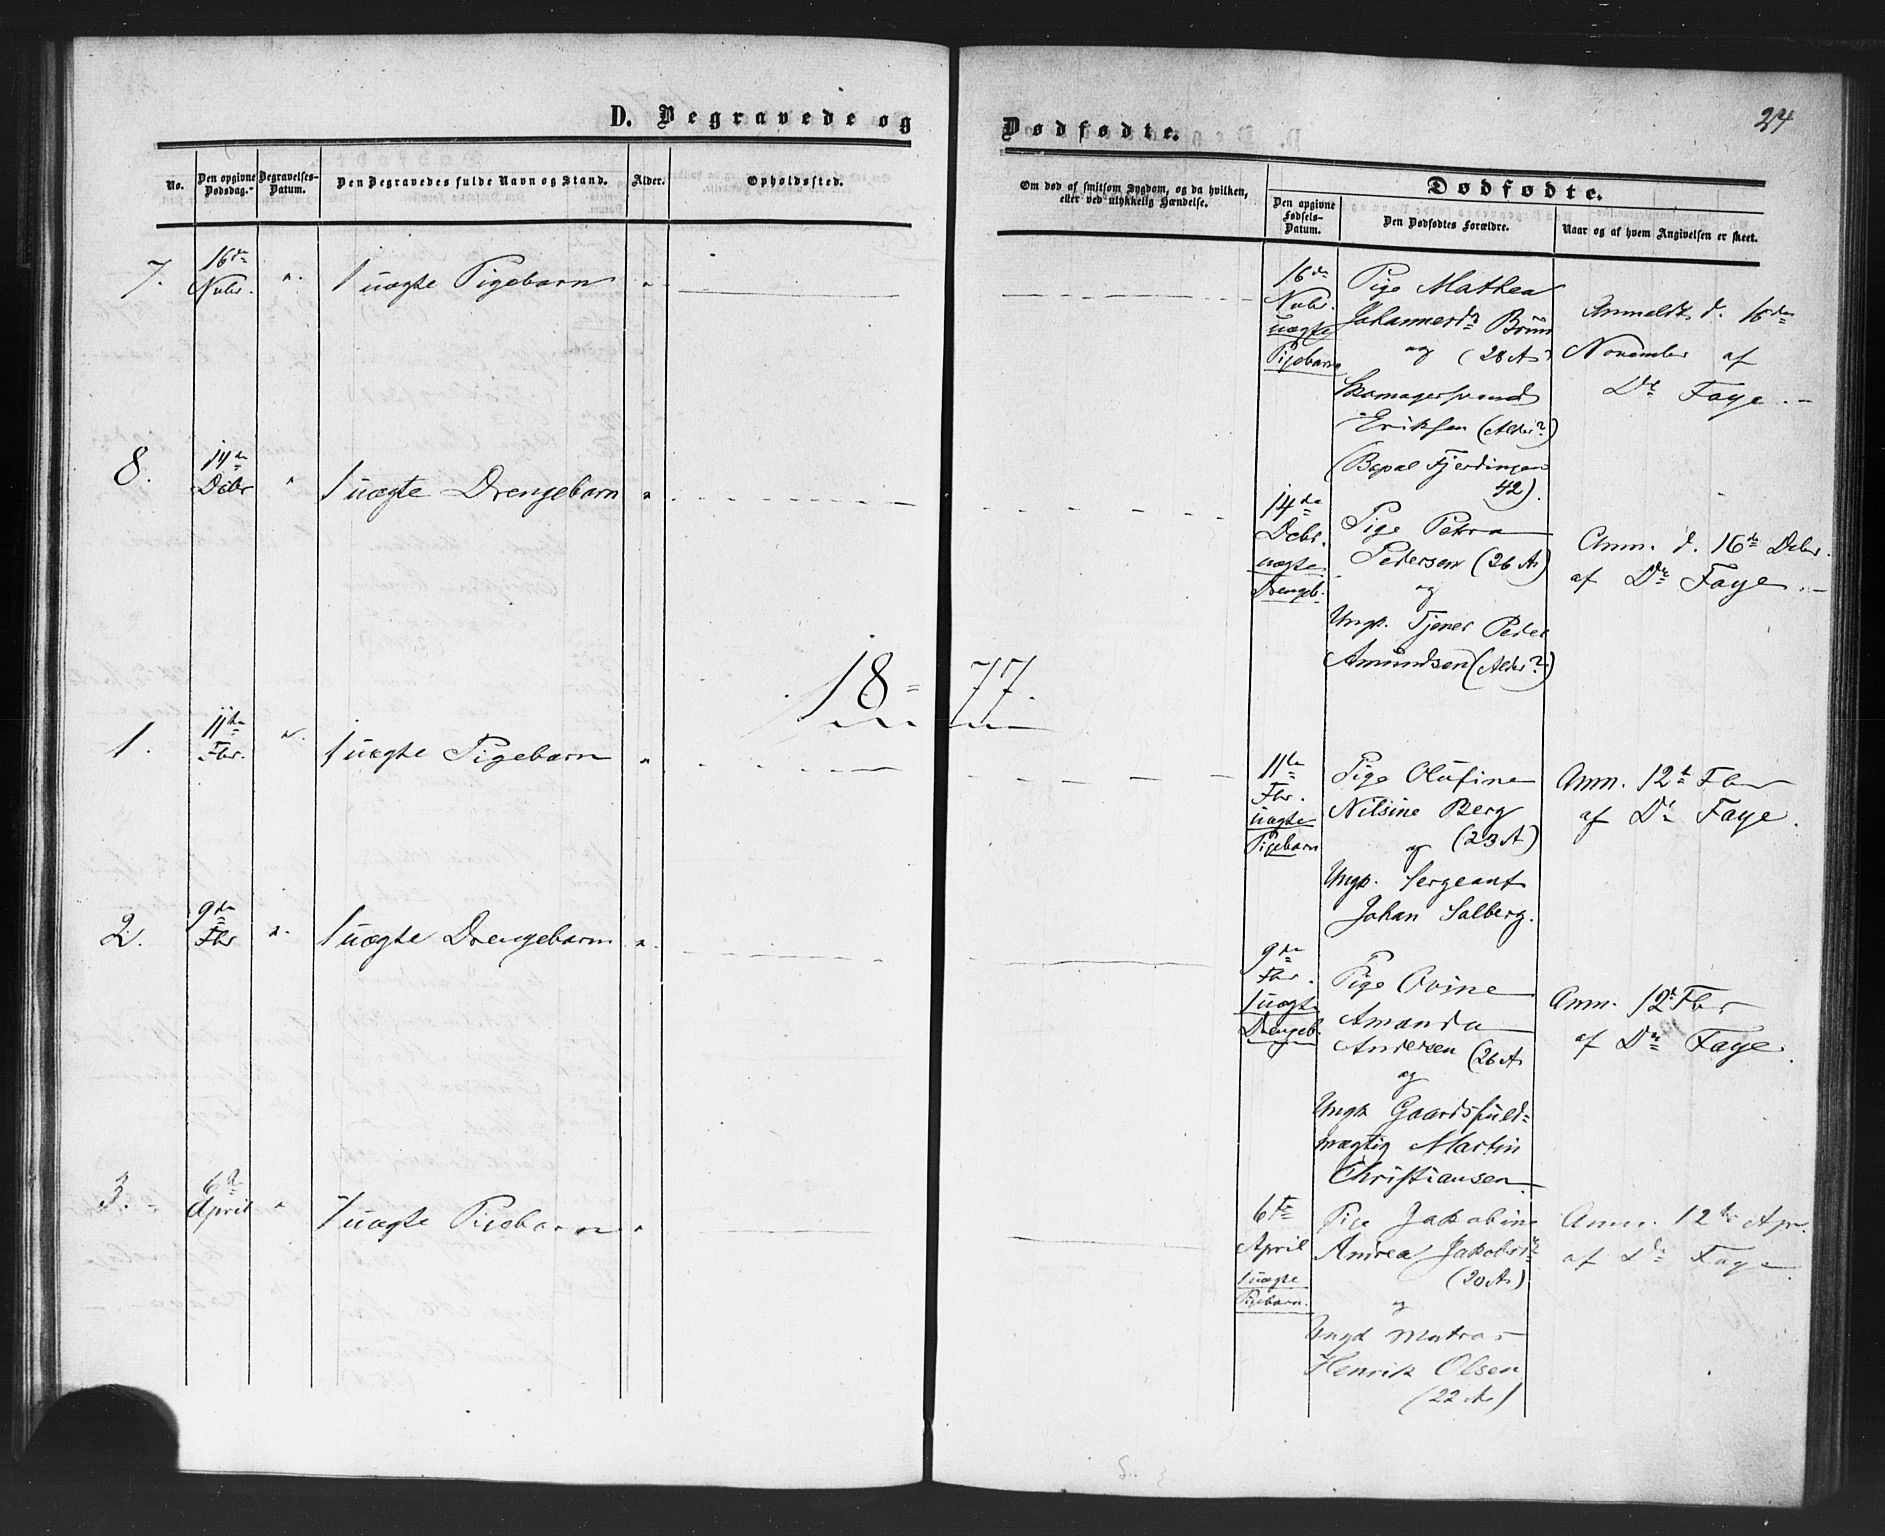 D. Begravede og
Dødfødte.
24
No.
Den opgivne Dødsdag.
Begravelses-Datum.
Den Begravedes fulde Navn og Stand.
Alder.
Opholdssted.
Om død af smitsom Sygdom, og da hvilken, eller ved ulykkelig Hændelse.
Dødfødte.
Den opgivne Fødsels-Datum.
Den Dødfødtes Forældre.
Naar og af hvem Angivelsen er skeet.
7.
16de
Nvbr.
"
1 uægte Pigebarn
"
16de
Nvbr.
uægte
Pigebarn
Pige Mathea
Johannesdr Brun
og (28 A)
Skomagersvend
Eriksen (Alder?)
Fjerdingen
42).
Anmeldt d. 16de
November af
Dr Faye.
8.
14de
Dcbr
"
1 uægte Drengebarn
"
14de
Dcbr.
uægte
Drengeb.
Pige Petra
Pedersen (26 A)
og
Ungk. Tjener Peder
Amundsen (Alder?)
Anm. d. 16de Dcbr.
af Dr Faye.
18=77.
1.
11te
Fbr.
"
1 uægte Pigebarn
"
11te
Fbr.
uægte
Pigebarn
Pige Olufine
Nilsine Berg
og (23 A)
Ungk. Sergeant
Johan Solberg.
Anm. 12t Fbr
af Dr Faye.
2.
9de
Fbr
"
1 uægte Drengebarn
"
9de
Fbr.
1 uægte
Drengeb.
Pige Ovine
Amanda
Andersen (26 A
og
Ungk Gaardsfuld=
mægtig Martin
Christiansen.
Anm. 12t Fbr
af Dr Faye.
3.
6te
April
"
1 uægte Pigebarn
"
6te
April
1 uægte
Pigebarn.
Pige Jakobine
Andrea Jakobsdr
(20 A)
og
Ungk Matros
Henrik Olsen
(22 A)
Anm. 12te Apr.
af Dr Faye.